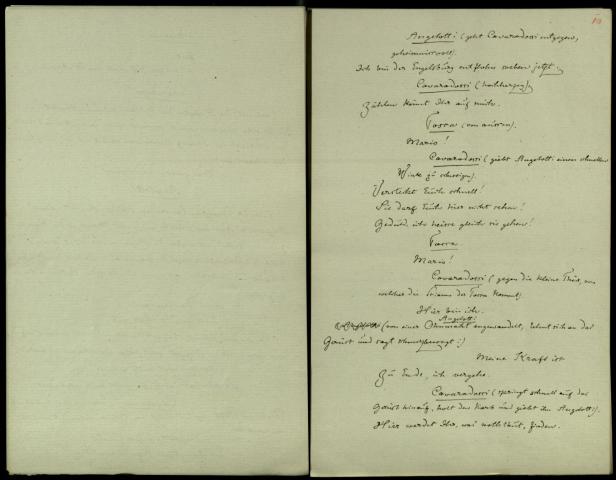 Angelotti (geht Cavaradossi entgegen,
geheimnisvoll).
Ich bin der Engelsburg entflohn soeben jetzt.
Cavaradossi (hochherzig).
Zählen könnt Ihr auf mich.
Tosca (von aussen).
Mario!
Cavaradossi (giebt Angelotti einen schnellen
Wink zu schweigen).
Verstecket Euch schnell!
Sie darf Euch hier nicht sehen!
Geduld, ich heisse gleich sie gehen!
Tosca
Mario!
Cavaradossi (gegen die kleine Thür, aus
welcher die Stimme der Tosca kommt)
Hier bin ich.
Angelotti
(von einer Ohnmacht angewandelt, lehnt sich an das
Gerüst und sagt :)
Meine Kraft ist
Zu Ende, ich vergehe.
Cavaradossi (springt schnell auf das
Gerüst hinauf, holt den Korb und giebt ihn Angelotti).
Hier werdet Ihr, was noth thut, finden.